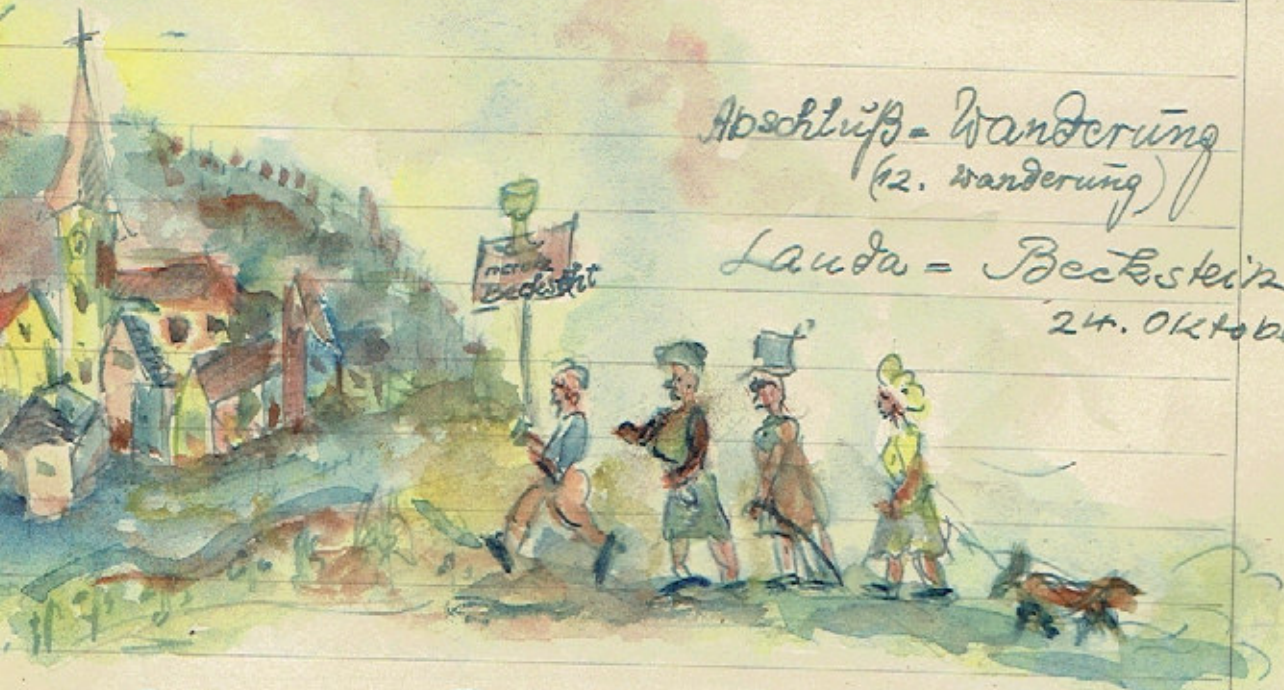 Abschluß = Wanderung
(12. Wanderung)
Lauda = Beckstein
24. Oktob
Beckstein